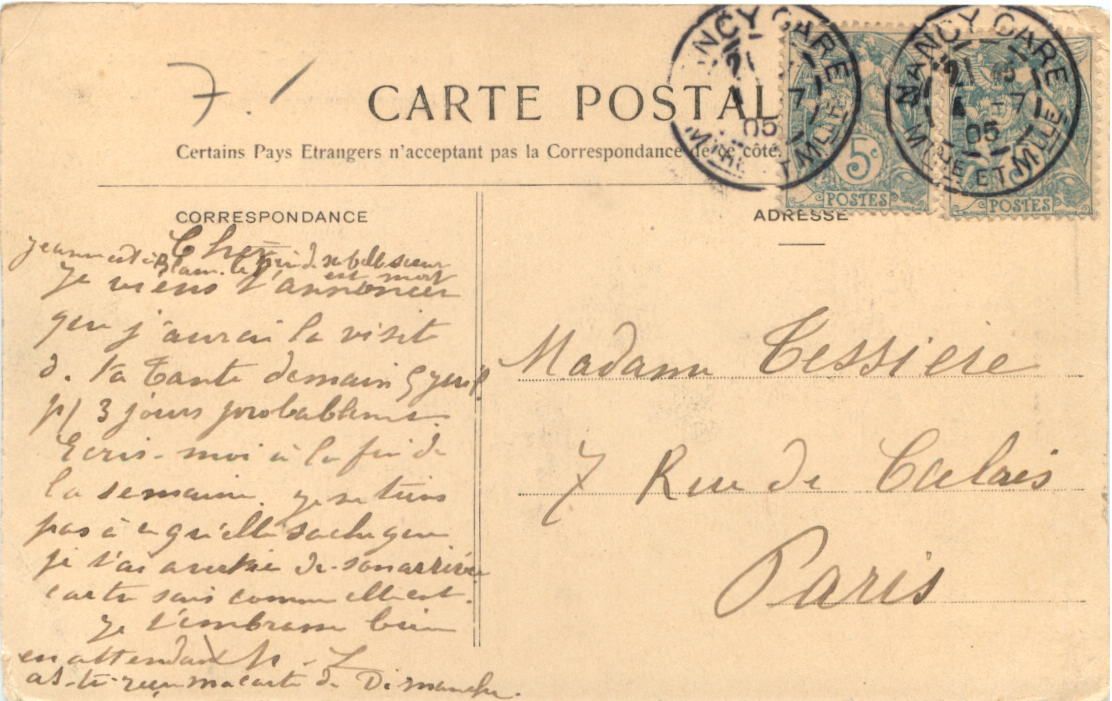 7.
CARTE POSTAL
Certains Pays Etrangers n'acceptant pas la Correspondance de ce côté.
NANCY GARE
21
-7
05
MTHE ET MLLE
5c
POSTES
NANCY GARE
21
-7
05
MTHE ET MLLE
POSTES
CORRESPONDANCE
ADRESSE
est mort
Je viens t'annoncer
que j'aurai la visit
d. ta tante demain
p/ 3 jours probablement
Ecris-moi à la fin de
la semaine. je ne tiens
pas à ce qu'elle sache que
je t'ai de son arrivée
carte sais comm elle est.
je t'embrasse bien
en attendant
as-tu reçu ma carte de Dimanche.
Madame Tessiere
7 Rue de Calais
Paris